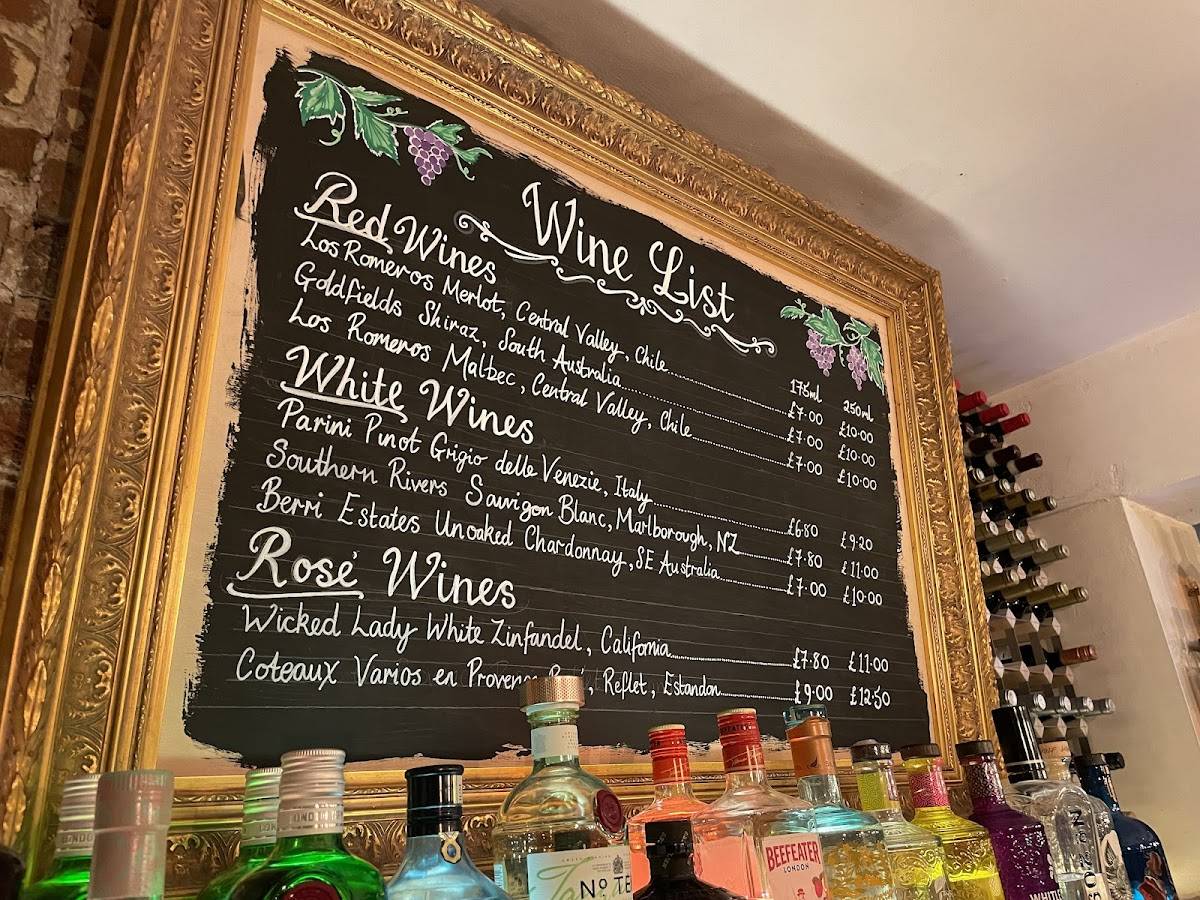 Wine List
Red Wines
175ml 250ml
Los Romeros Merlot, Central Valley, Chile £7.00 £10.00
Goldfields Shiraz, South Australia £7.00 £10.00
Los Romeros Malbec, Central Valley, Chile £7.00 £10.00
White Wines
Parini Pinot Grigio delle Venezie, Italy £6.80 £9.20
Southern Rivers Sauvigon Blanc, Marlborough, NZ £7.80 £11.00
Berri Estates Unoaked Chardonnay, SE Australia £7.00 £10.00
Rosé Wines
Wicked Lady White Zinfandel, California £7.80 £11.00
Coteaux Varios en Provence Reflet, Estandon £9.00 £12.50
No TE
BEEFEATER
LONDON